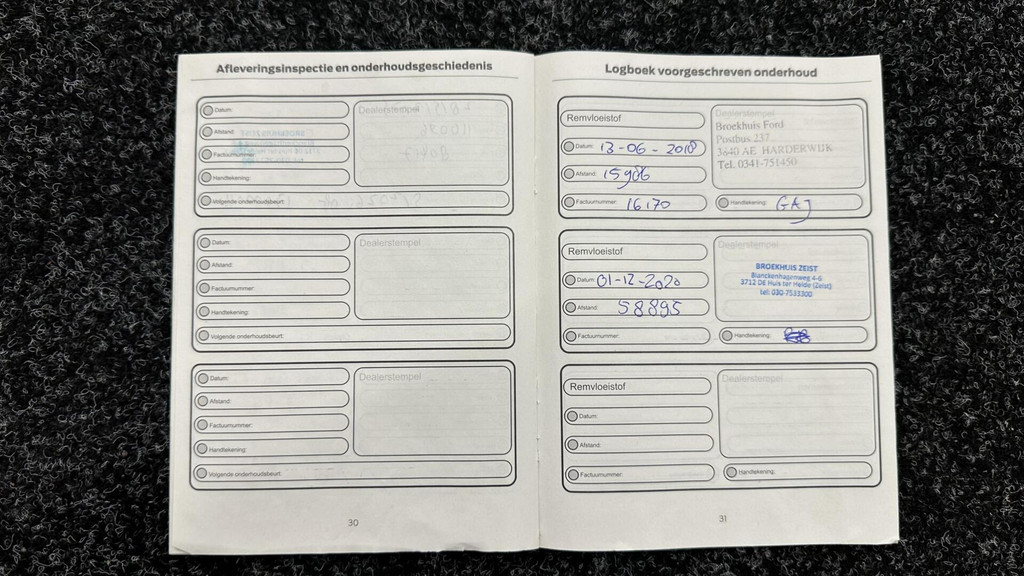 Afleveringsinspectie en onderhoudsgeschiedenis
Datum:
Dealerstempel
Afstand:
Factuurnummer:
Handtekening:
Volgende onderhoudsbeurt:
Datum:
Dealerstempel
Afstand:
Factuurnummer:
Handtekening:
Volgende onderhoudsbeurt:
Datum:
Dealerstempel
Afstand:
Factuurnummer:
Handtekening:
Volgende onderhoudsbeurt:
30
Logboek voorgeschreven onderhoud
Remvloeistof
Datum: 13-06-2018
Afstand: 15986
Factuurnummer: 16170
Dealerstempel
Broekhuis Ford
Postbus 237
3840 AE HARDERWIJK
Tel. 0341-751450
Handtekening: GAJ
Remvloeistof
Datum: 01-12-2020
Afstand: 58895
Factuurnummer:
Dealerstempel
BROEKHUIS ZEIST
Blanckenhagenweg 4-6
3712 DE Huis ter Heide (Zeist)
tel: 030-7533300
Handtekening:
Remvloeistof
Datum:
Afstand:
Factuurnummer:
Dealerstempel
Handtekening:
31